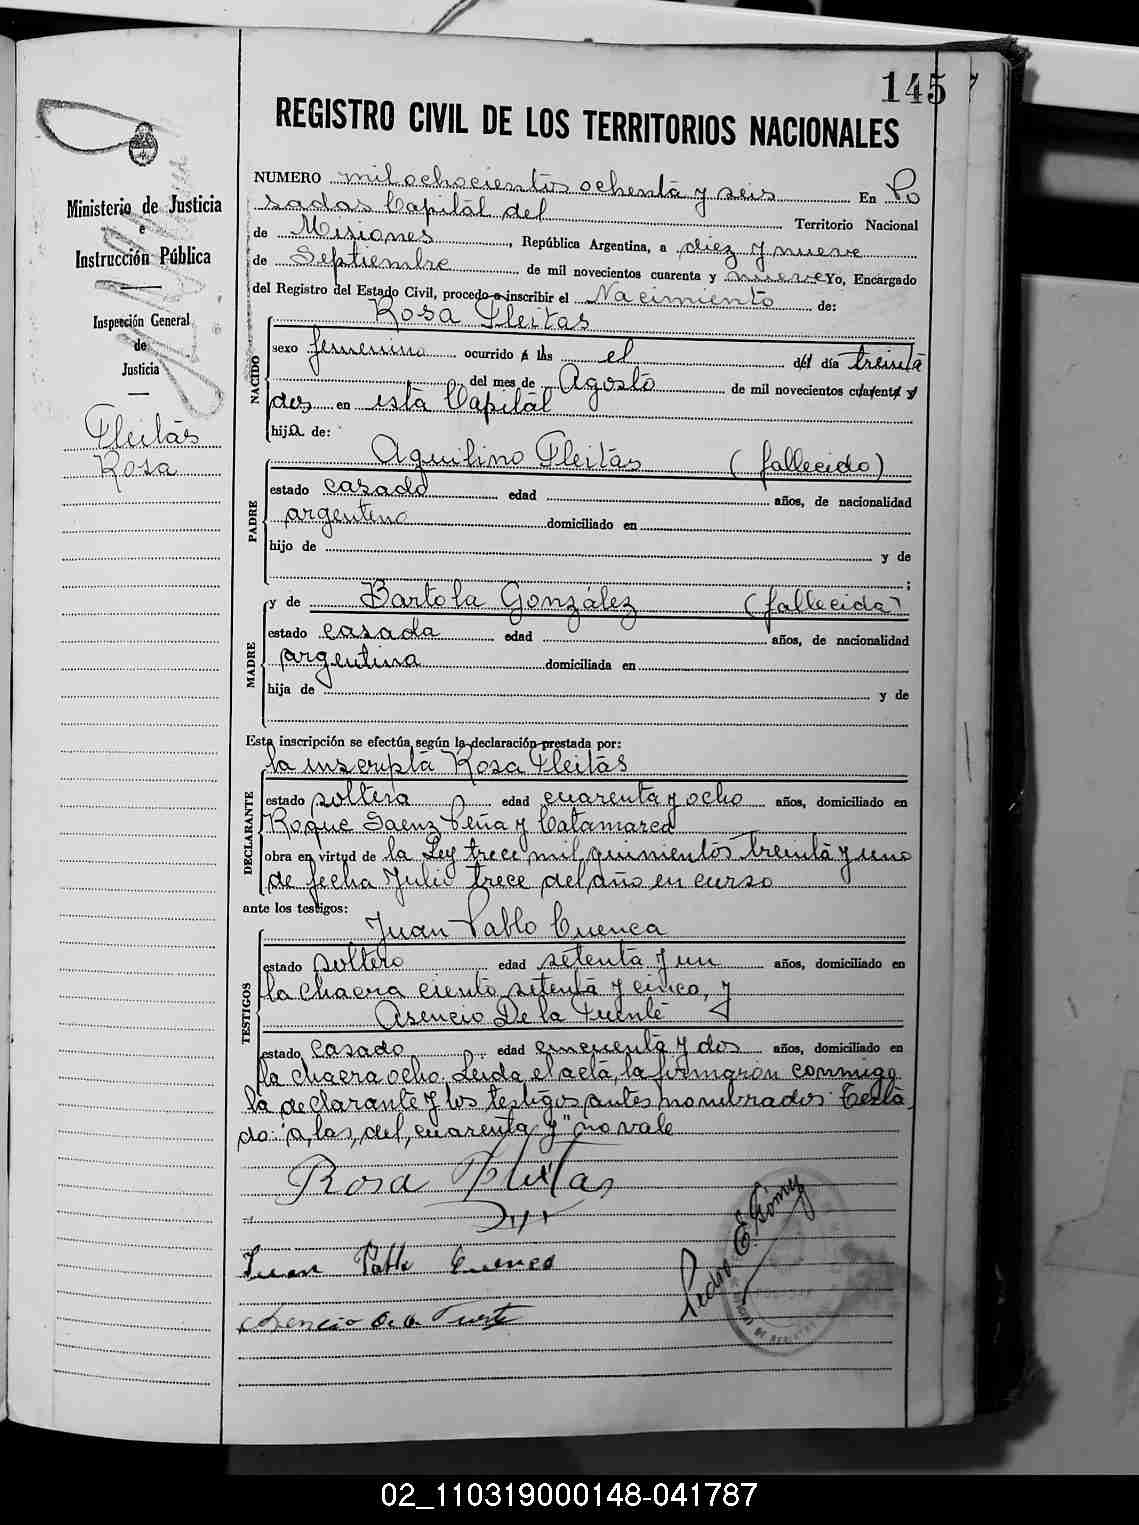 145
REGISTRO CIVIL DE LOS TERRITORIOS NACIONALES
Ministerio de Justicia
e
Instrucción Pública
Inspección General
de
Justicia
Fleitas
Rosa
NUMERO mil ochocientos ochenta y seis En Po
sadas Capital del Territorio Nacional
de Misiones, República Argentina, a diez y nueve
de Septiembre de mil novecientos cuarenta y nueve Yo, Encargado
del Registro del Estado Civil, procedo a inscribir el Nacimiento de:
NACIDO
Rosa Fleitas
sexo femenino ocurrido a las el del día treinta
del mes de Agosto de mil novecientos cuarenta y
dos en esta Capital
hija de:
PADRE
Aquilino Fleitas (fallecido)
estado casado edad años, de nacionalidad
argentino domiciliado en
hijo de y de
;
MADRE
y de Bartola González (fallecida)
estado casada edad años, de nacionalidad
argentina domiciliada en
hija de y de
Esta inscripción se efectúa según la declaración prestada por:
DECLARANTE
la inscripta Rosa Fleitas
estado soltera edad cuarenta y ocho años, domiciliado en
Roque Saenz Peña y Catamarca
obra en virtud de la Ley trece mil quinientos treinta y uno
de fecha Julio trece del año en curso
ante los testigos:
TESTIGOS
Juan Pablo Cuenca
estado soltero edad setenta y un años, domiciliado en
la chacra ciento setenta y cinco, y
Asencio De la Fuente
estado casado edad cincuenta y dos años, domiciliado en
la chacra ocho. Leida el acta, la firmaron conmigo
la declarante y los testigos antes nombrados. Testa
do: "a, las, del, cuarenta y" no vale
Rosa Fleitas
Juan Pablo Cuenca
Pedro E. Gómez
Asencio de la Fuente
02_110319000148-041787